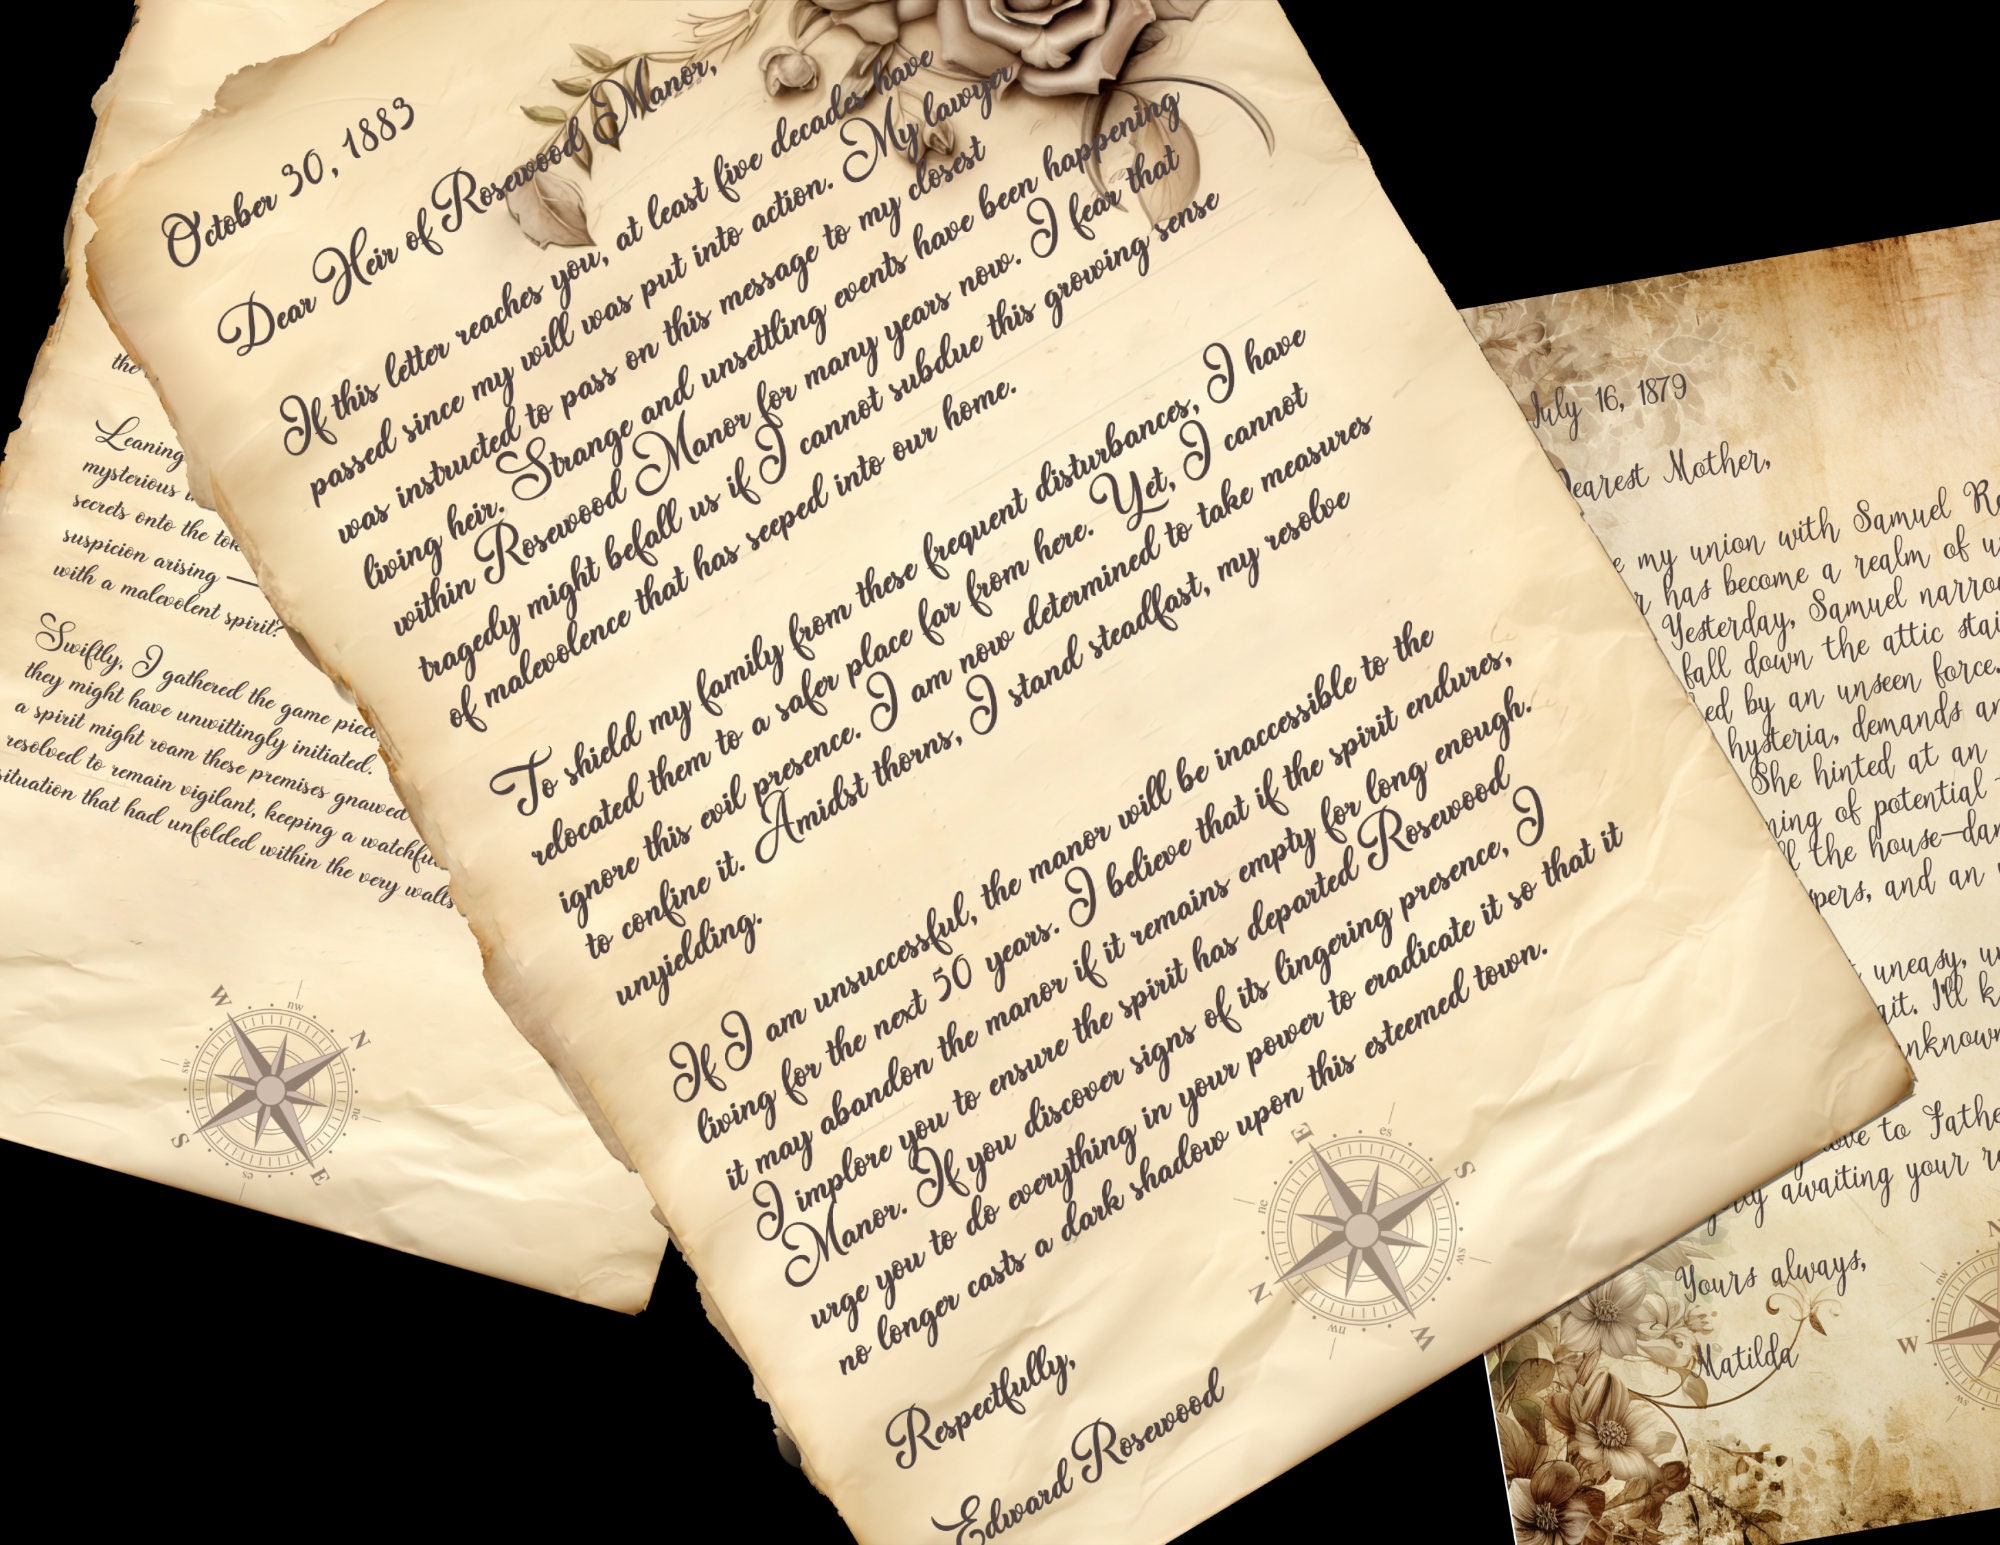 October 30, 1883
Dear Heir of Rosewood Manor,
If this letter reaches you, at least five decades have
passed since my will was put into action. My lawyer
was instructed to pass on this message to my closest
living heir. Strange and unsettling events have been happening
within Rosewood Manor for many years now. I fear that
tragedy might befall us if I cannot subdue this growing sense
of malevolence that has seeped into our home.
To shield my family from these frequent disturbances, I have
relocated them to a safer place far from here. Yet, I cannot
ignore this evil presence. I am now determined to take measures
to confine it. Amidst thorns, I stand steadfast, my resolve
unyielding.
If I am unsuccessful, the manor will be inaccessible to the
living for the next 50 years. I believe that if the spirit endures,
it may abandon the manor if it remains empty for long enough.
I implore you to ensure the spirit has departed Rosewood
Manor. If you discover signs of its lingering presence, I
urge you to do everything in your power to eradicate it so that it
no longer casts a dark shadow upon this esteemed town.
Respectfully,
Edward Rosewood
N
ne
E
es
S
sw
W
nw
the
Leaning
mysterious
secrets onto the
suspicion arising —
with a malevolent spirit?
Swiftly, I gathered the game
they might have unwittingly initiated.
a spirit might roam these premises gnawed
resolved to remain vigilant, keeping a
situation that had unfolded within the very walls
W
nw
N
ne
E
es
S
sw
July 16, 1879
Dearest Mother,
my union with Samuel
has become a realm of
Yesterday, Samuel
fall down the attic
by an unseen force.
hysteria, demands
She hinted at an
of potential
the house—
and an
uneasy,
I'll
to
awaiting your
Yours always,
Matilda
nw
W
sw